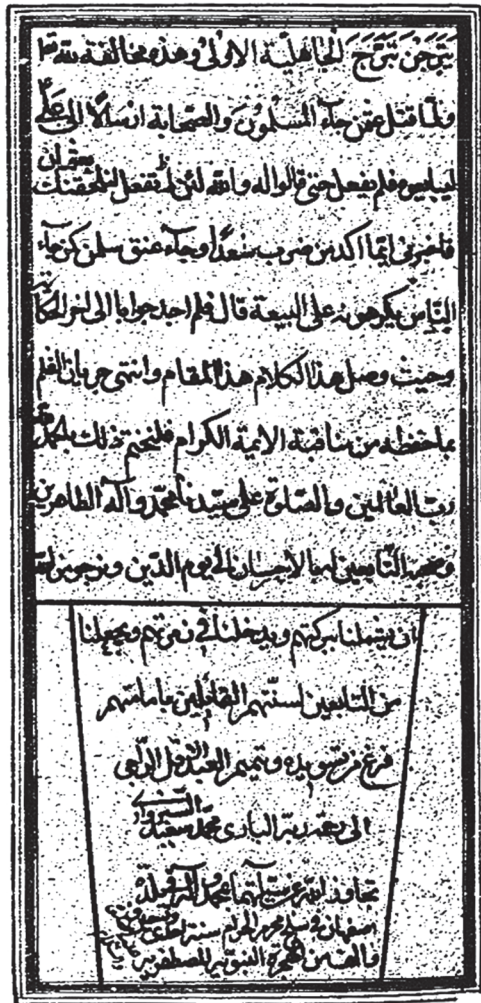 تبرجن تبرج الجاهلية الاولى وهذه مخالفة لله
ولما قتل عثمن جاء المسلمون والصحابة ارسالا الى على
ليبايعوه فلم يفعل حتى قالوا له والله لئن لم تفعل لنلحقنك بعثمان
فاخبرنى ايما اكد من ضرب سعدا وجاء عنق سلمن كمن جاء
الناس يكرهونه على البيعة قال فلم احد جوابا الى اخر الحكاية
وحيث وصل هذا الكلام هذا المقام وانتهى جريان القلم
بما حفظه من مناقبة الايمة الكرام فلنختم ذلك بالحمد لله
رب العالمين والصلوة على سيدنا محمد وآله الطاهرين
وصحبه التابعين لهم بالاحسان الى يوم الدين ونرجو من الله
ان يشملنا ببركتهم ويدخلنا فى زمرتهم ويجعلنا
من التابعين لسنتهم القائلين بامامتهم
فرغ من تسويده وتتميم العبد الاقل الراجى
الى رحمة ربه البارى محمد سعيد
تجاوز الله عن سيئاتهما بمحمد وآله فى بلدة
اصفهان فى محرم الحرام سنة احدى
من الهجرة النبوية المصطفوية